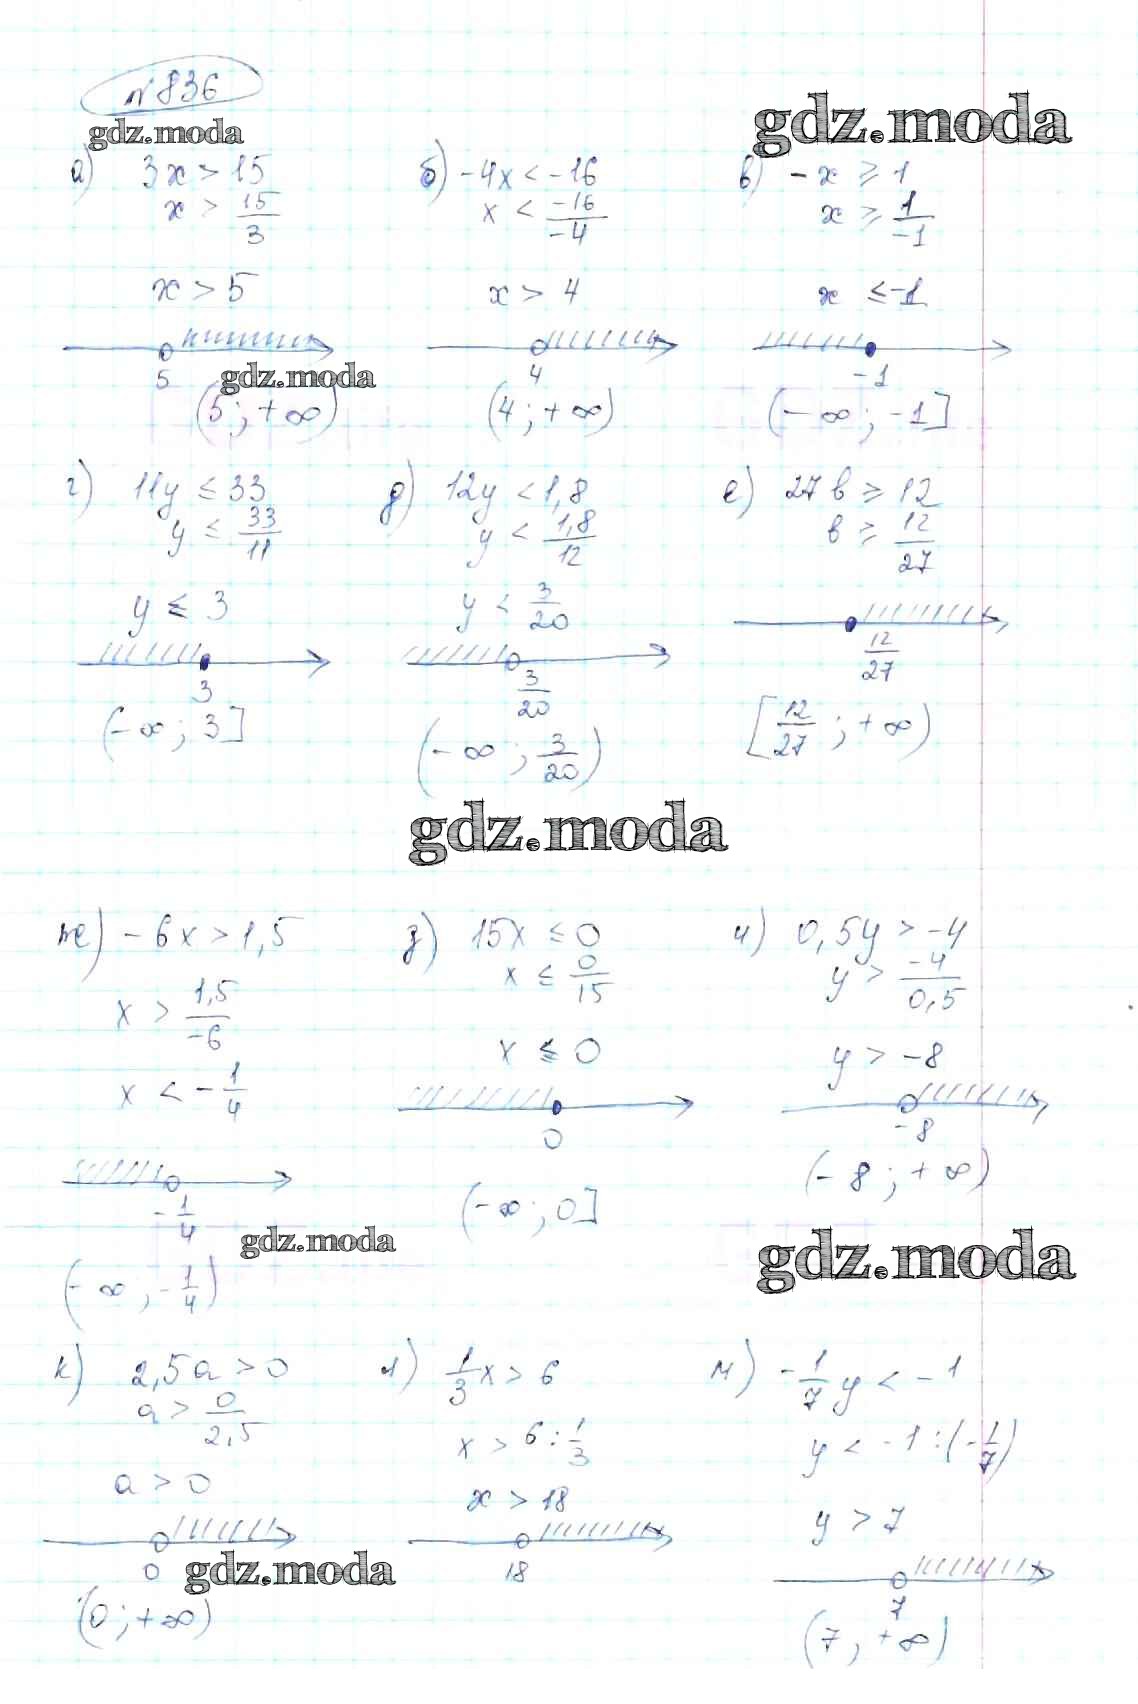 №836
gdz.moda
gdz.moda
а) 3x > 15
x > 15/3
x > 5
5
gdz.moda
(5 ; +∞)
б) -4x < -16
x < -16/-4
x > 4
4
(4 ; +∞)
в) -x ⩾ 1
x ⩾ 1/-1
x ≤ -1
-1
(-∞ ; -1]
г) 11y ≤ 33
y ≤ 33/11
y ≤ 3
3
(-∞ ; 3]
д) 12y < 1,8
y < 1,8/12
y < 3/20
3/20
(-∞ ; 3/20)
е) 27b ⩾ 12
b ⩾ 12/27
12/27
[12/27 ; +∞)
gdz.moda
ж) -6x > 1,5
x > 1,5/-6
x < -1/4
-1/4
gdz.moda
(-∞ ; -1/4)
з) 15x ≤ 0
x ≤ 0/15
x ≤ 0
0
(-∞ ; 0]
и) 0,5y > -4
y > -4/0,5
y > -8
-8
(-8 ; +∞)
gdz.moda
к) 2,5a > 0
a > 0/2,5
a > 0
0
gdz.moda
(0 ; +∞)
л) 1/3x > 6
x > 6 : 1/3
x > 18
18
м) -1/7y < -1
y < -1 : (-1/7)
y > 7
7
(7 ; +∞)